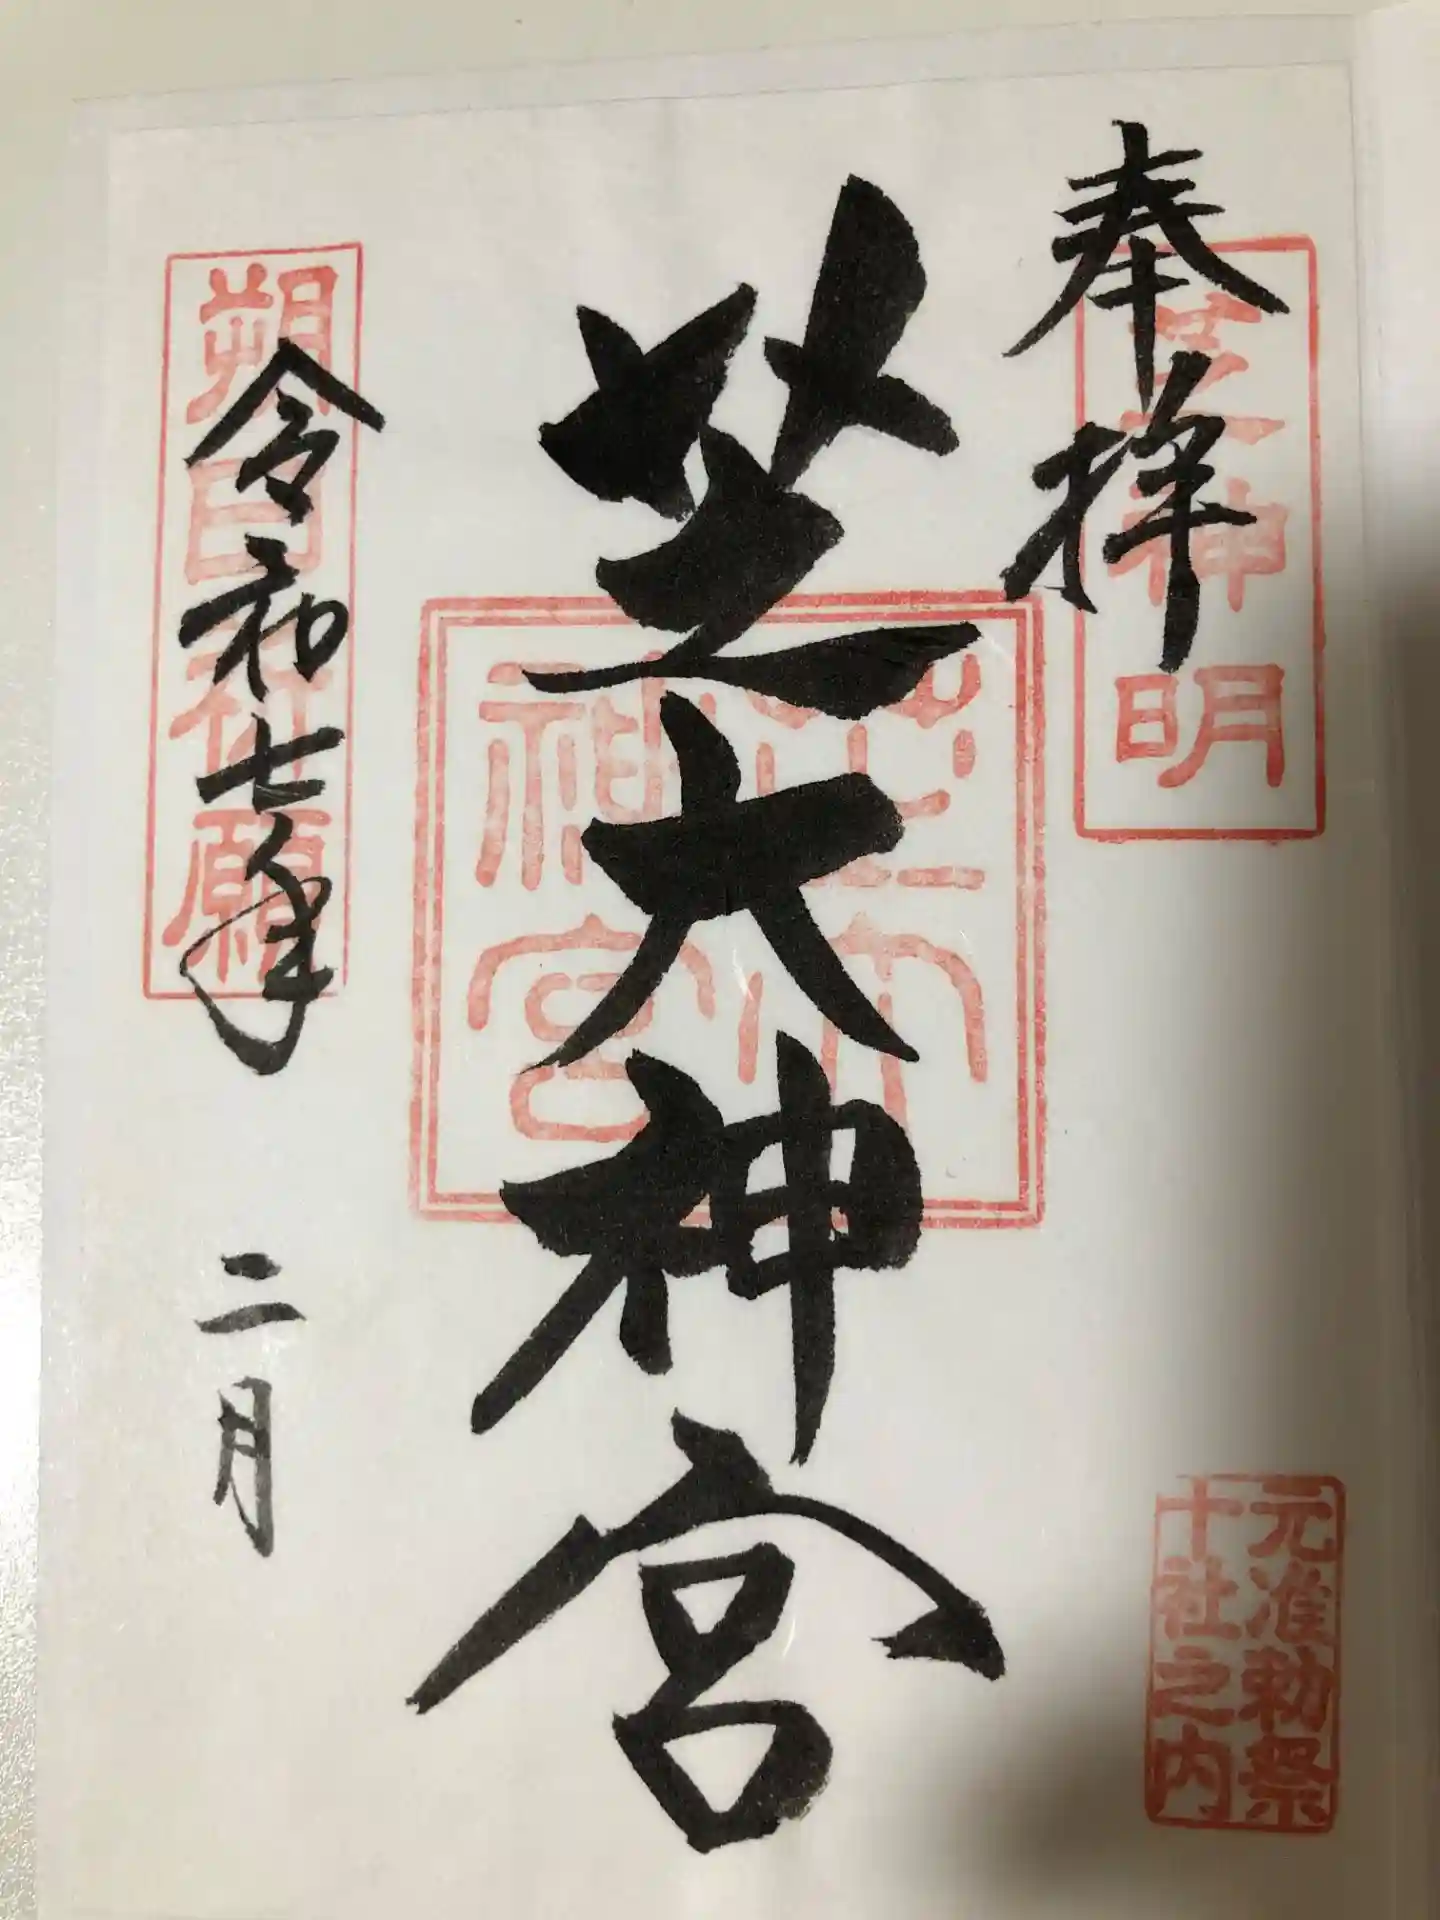 奉拝
芝神明
芝大神宮
芝大
神宮
令和七年 二月
朔日祈願
元准勅祭
十社之内